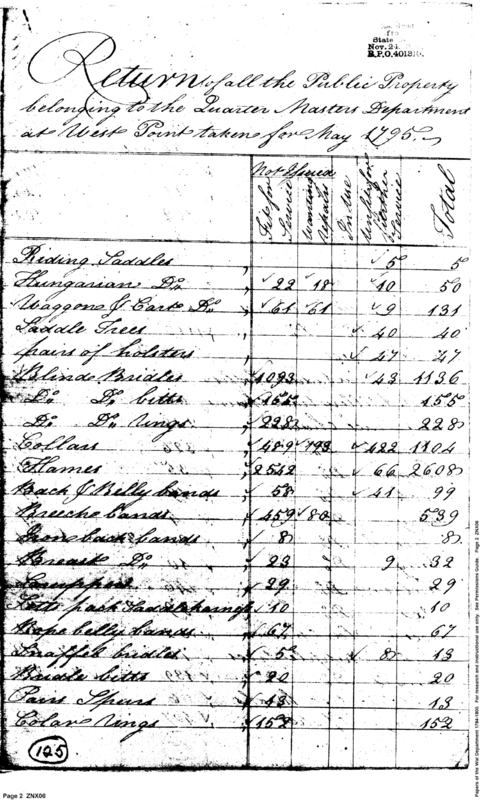 State
Nov. 24
R.P.O. 401310.
Return of all the Public Property
belonging to the Quarter Masters Department
at West Point taken for May 1795.
Not Issued
Fit for Service
Wanting repairs
In use
Unfit for further Service
Total
Riding Saddles 5 5
Hungarian Do. 22 18 10 50
Waggon & Cart Do. 61 61 9 131
Saddle Trees 40 40
pairs of holsters 47 47
Blind Bridles 1093 43 1136
Do. Do. bitts 155 155
Do. Do. rings 228 228
Collars 489 193 422 1104
Hames 2542 66 2608
Back & Belly bands 58 41 99
Breech bands 459 80 539
Iron back bands 8 8
Breast Do. 23 9 32
29 29
pack Saddle 10 10
Rope belly bands 67 67
Snaffel bridles 5 8 13
Bridle bitts 20 20
Pairs Spurs 13 13
Colar rings 152 152
125
Page 2 ZNX06
Papers of the War Department 1784-1800. For research and instructional use only. See Permissions Guide. Page 2 ZNX06